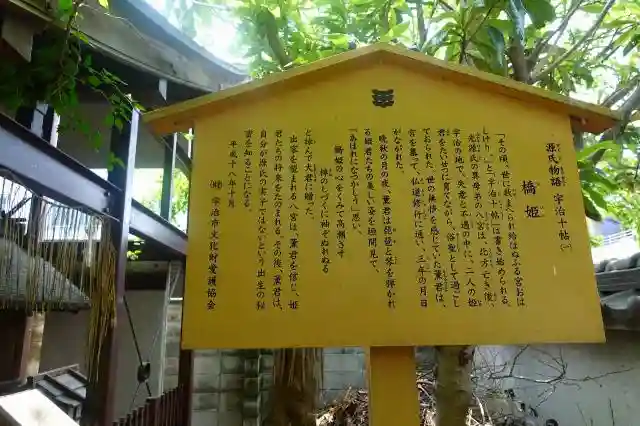 源氏物語 宇治十帖 (一)
橋姫
「その頃、世に数まへられ給はぬふる宮おは
しけり。」と「宇治十帖」は書き始められる。
光源氏の異母弟の八宮は、北方亡き後、
宇治の地で、失意と不遇の中に、二人の姫
君をたいせつに育てながら、俗聖として過ごし
ておられた。世の無常を感じていた薫君は、
宮を慕って、仏道修行に通い、三年の月日
がながれた。
晩秋の月の夜、薫君は琵琶と琴を弾かれ
る姫君たちの美しい姿を垣間見て、
「あはれになつかしう」思い、
橋姫の心をくみて高瀬さす
棹のしづくに袖ぞぬれぬる
と詠んで大君に贈った。
出家を望まれる八宮は、薫君を信じ、姫
君たちの将来をたのまれる。その後、薫君は、
自分が源氏の実子ではないという出生の秘
密を知ることになる。
平成十八年十月
(財)宇治市文化財愛護協会